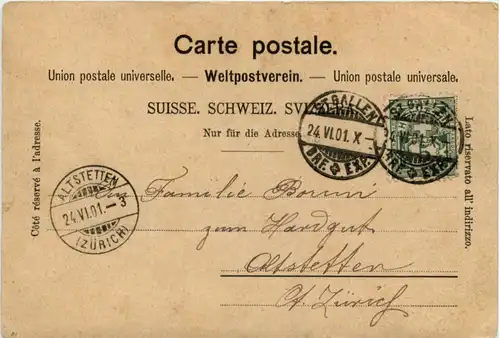 Carte postale.
Union postale universelle. — Weltpostverein. — Union postale universale.
SUISSE. SCHWEIZ. SVIZZERA.
Nur für die Adresse.
Côté réservé à l'adresse.
Lato riservato all' indirizzo.
ST. GALLEN
24.VI.01.X-
BRF. EXP.
ALTSTETTEN
24.VI.01.-3
(ZÜRICH)
Familie
zum Hardgut
Altstetten
Zürich